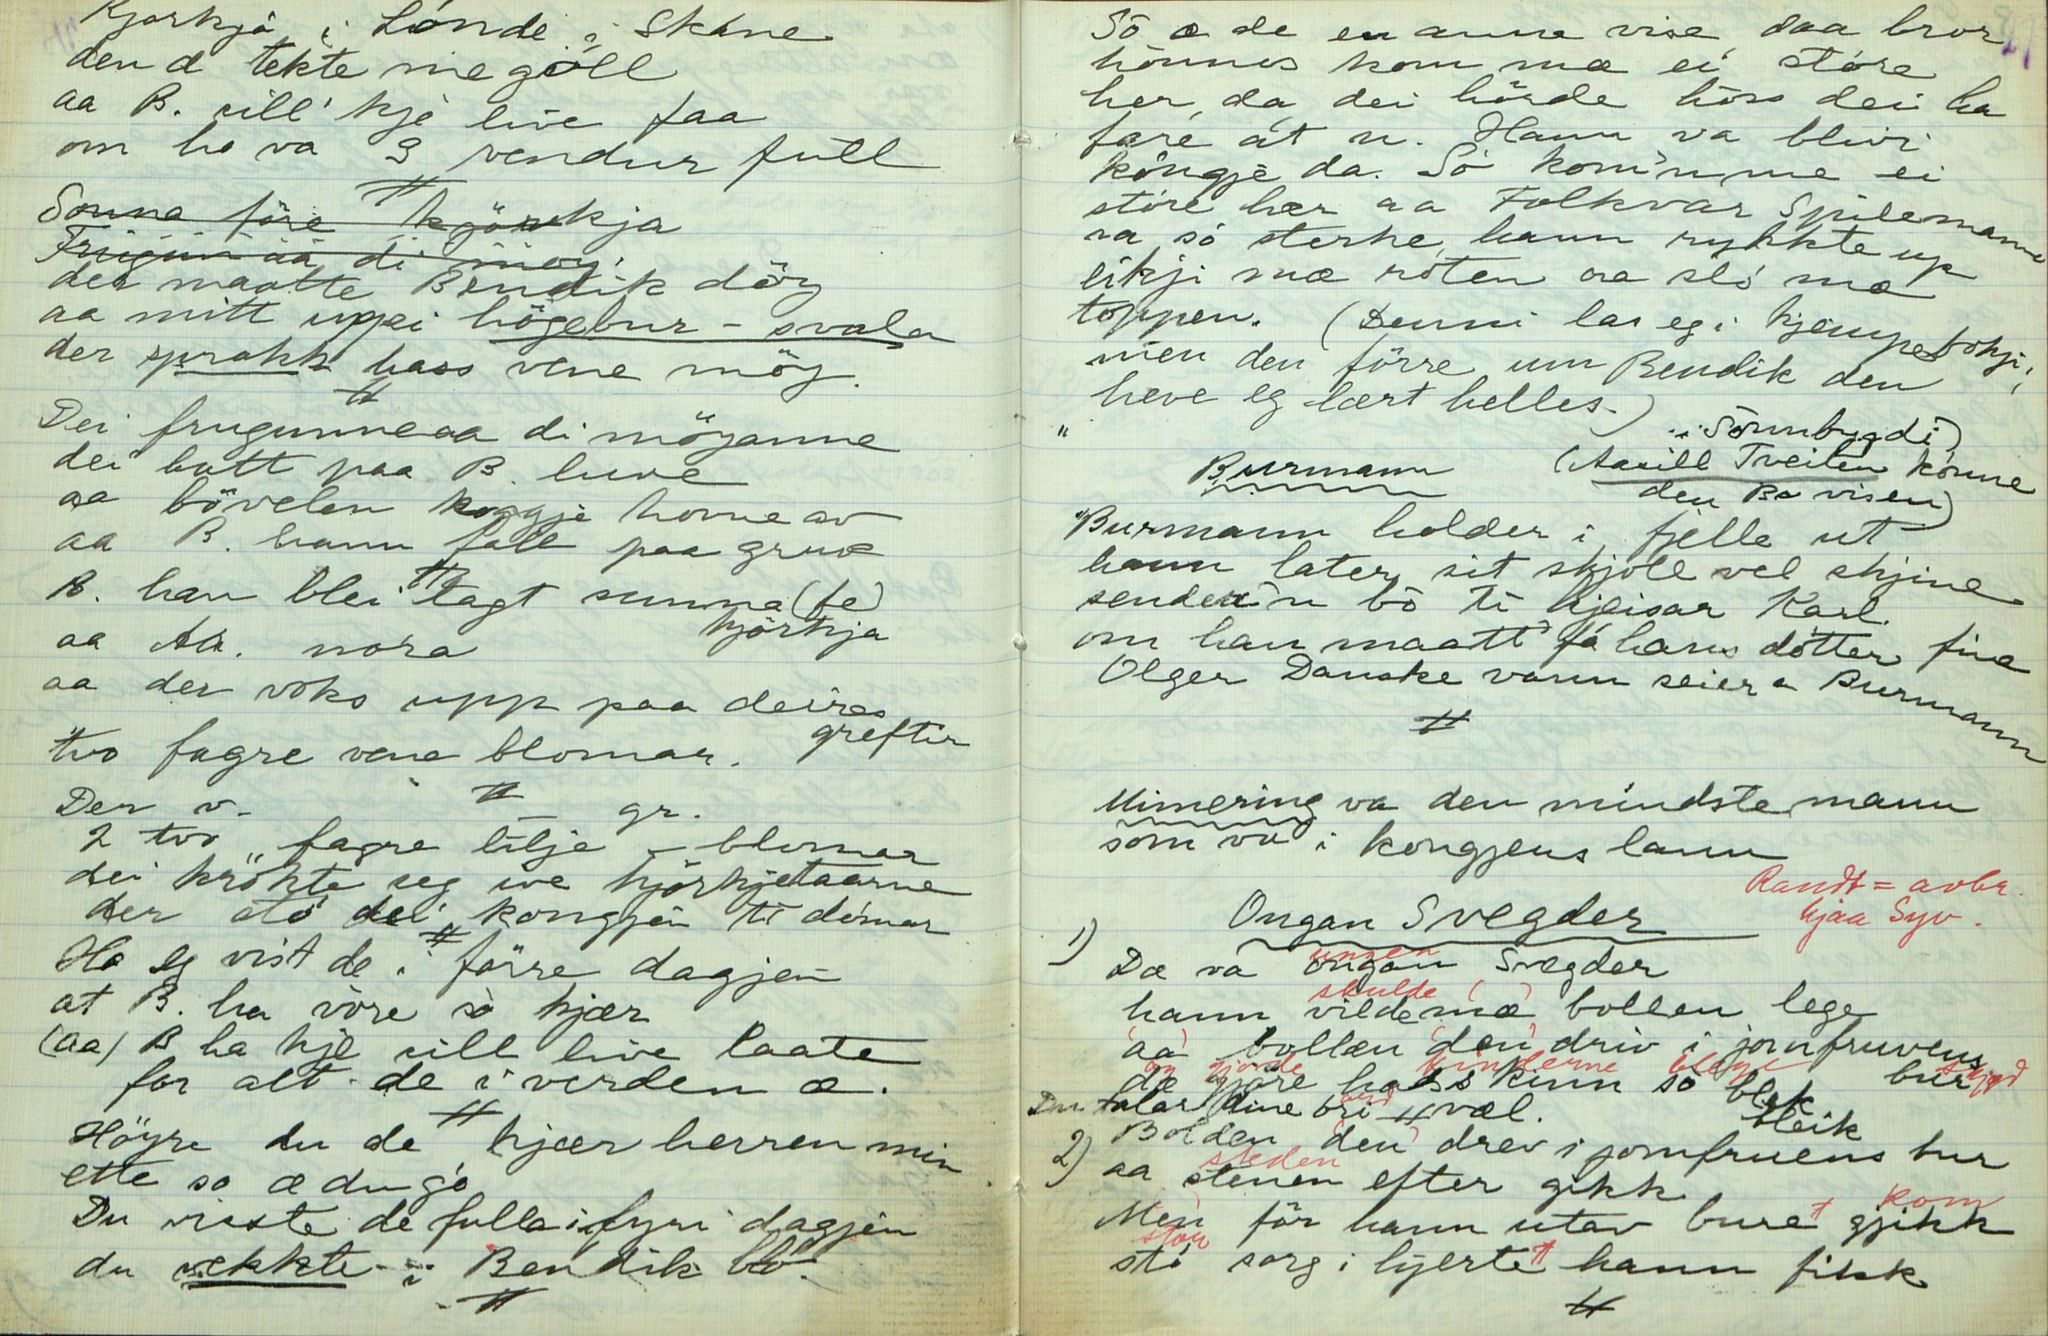 Kjørkjå i Lónde i Skåne
den d tekte me góll
aa B. vill' kje live faa
om ho va 3 vendur full
#
Sunna fóre kjörkja
Frúgun aa di möy
der maatte Bendik döy
aa mitt uppi högebur - svala
der sprakk hass vene möy.
#
Dei frugunne aa di möyanne
dei batt paa B. luve
aa bövelen hoggje hovue av
aa B. hann fall paa gruve
#
B. han blei lagt sunna (fe)
kjörkja
aa Aa. nora
aa der voks upp paa deires
grefter
tvo fagre vene blomar.
#
Der v. — gr.
2 tvo fagre lilje - blomar
dei krökte seg ive kjörkjetaarne
der stó dei kongjen ti dómar
#
Ha eg vist de i förre dagjen
at B. ha vòre sò kjær
(aa) B ha kje vill live laate
for alt de i verden æ.
#
Höyre du de kjær herren min
ette so æ du gó
Du visste de fulla i fyri dagjen
du vekkte i Bendik bló.
#
Só æ de en anna vise, daa bror
hönnes kom mæ ei stóre
her, da dei hörde höss dei ha
fare åt n. Hann va blivi
kóngje da. Só kom'n me ei
stóre hær aa Folkvar Spilemann
va só sterke, hann rykkte up
eikji mæ róten aa sló mæ
toppen. (Denni las eg i kjempebokji;
men den förre um Bendik den
heve eg lært helles.)
Burmann
i Sónnbygdi)
(Aasill Tveiten kónne
den Bo visen)
"Burmann holder i fjelle ut
hann later sit skjóll vel skjine
sender'n bó ti kjeisar Karl.
om han maatt' få hans dótter fine
Olger Danske vann seier a Burmann
#
Mimering va den mindste mann
som va i kongjens lann
Randt = avbr.
hjaa Syv.
Ongan Svegder
1)
ungen
Dæ va óngan Svegder
skulde ( )
hann vilde mæ bollen lege
aa bollen den driv i jomfruvens
bur
og gjorde kinderne blege
skjød
de gjøre hass kinn só blek
bleik
Du talar dine ori væl.
ord
#
2)
Bolden (den) drev i jomfruens bur
sveden
aa stenen efter gikk
kom
Men för hann utav buret gjikk
stor
stó sorg i hjertet hann fikk
#